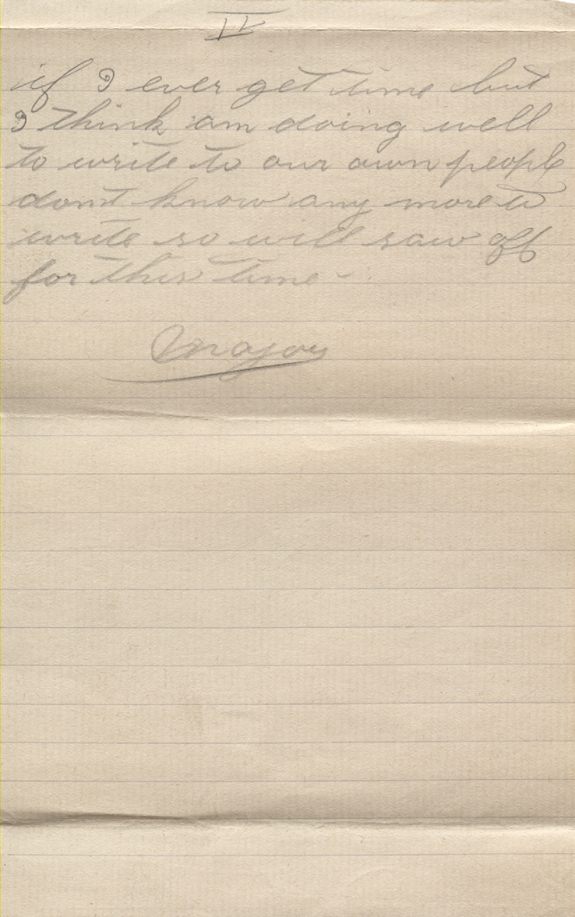 II
if I ever get time but
I think am doing well
to write to our own people
dont know any more to
write so will saw off
for this time -